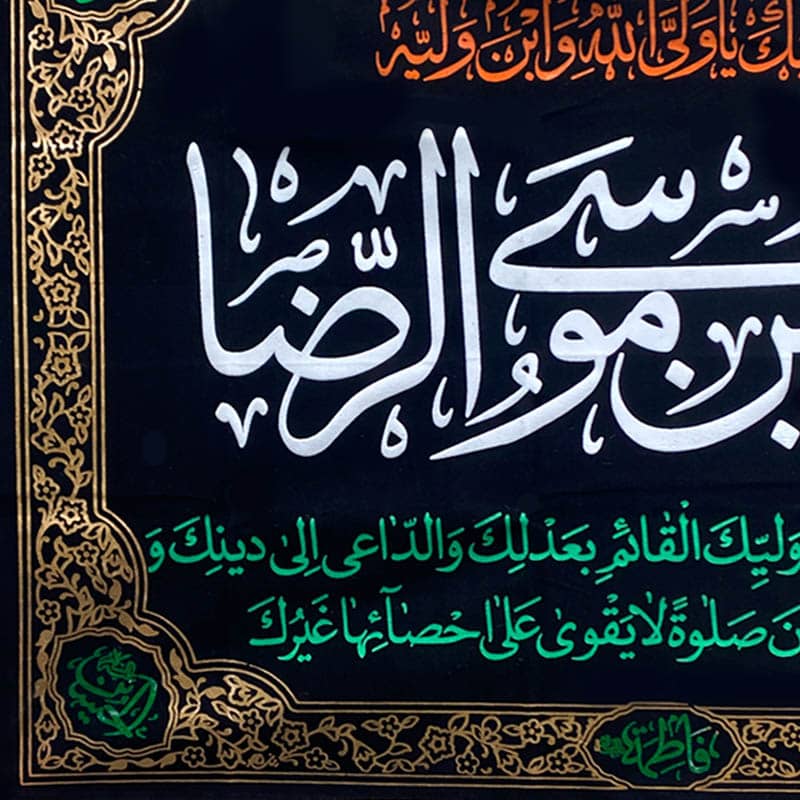 ياوَلىَّ اللّٰهِ وَابْنَ وَليّهِ
بن موسَى الرّضا
وَليّكَ الْقٰائمِ بعَدْلِكَ وَالدّٰاعى اِلىٰ دينِكَ وَ
صَلوٰةً لٰايَقْوىٰ عَلىٰ احْصٰآئهٰا غَيْرُكَ
الحسين
فاطمة